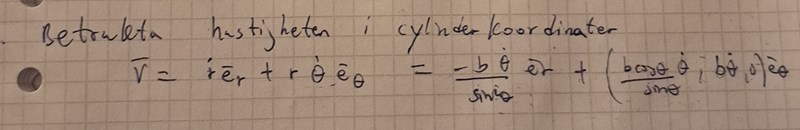 Betrakta hastigheten i cylinderkoordinater
v̄ = ṙ ēr + r θ̇ ēθ = -bθ̇/sin²θ ēr + (b cosθ/sinθ θ̇, bθ̇, 0) ēθ